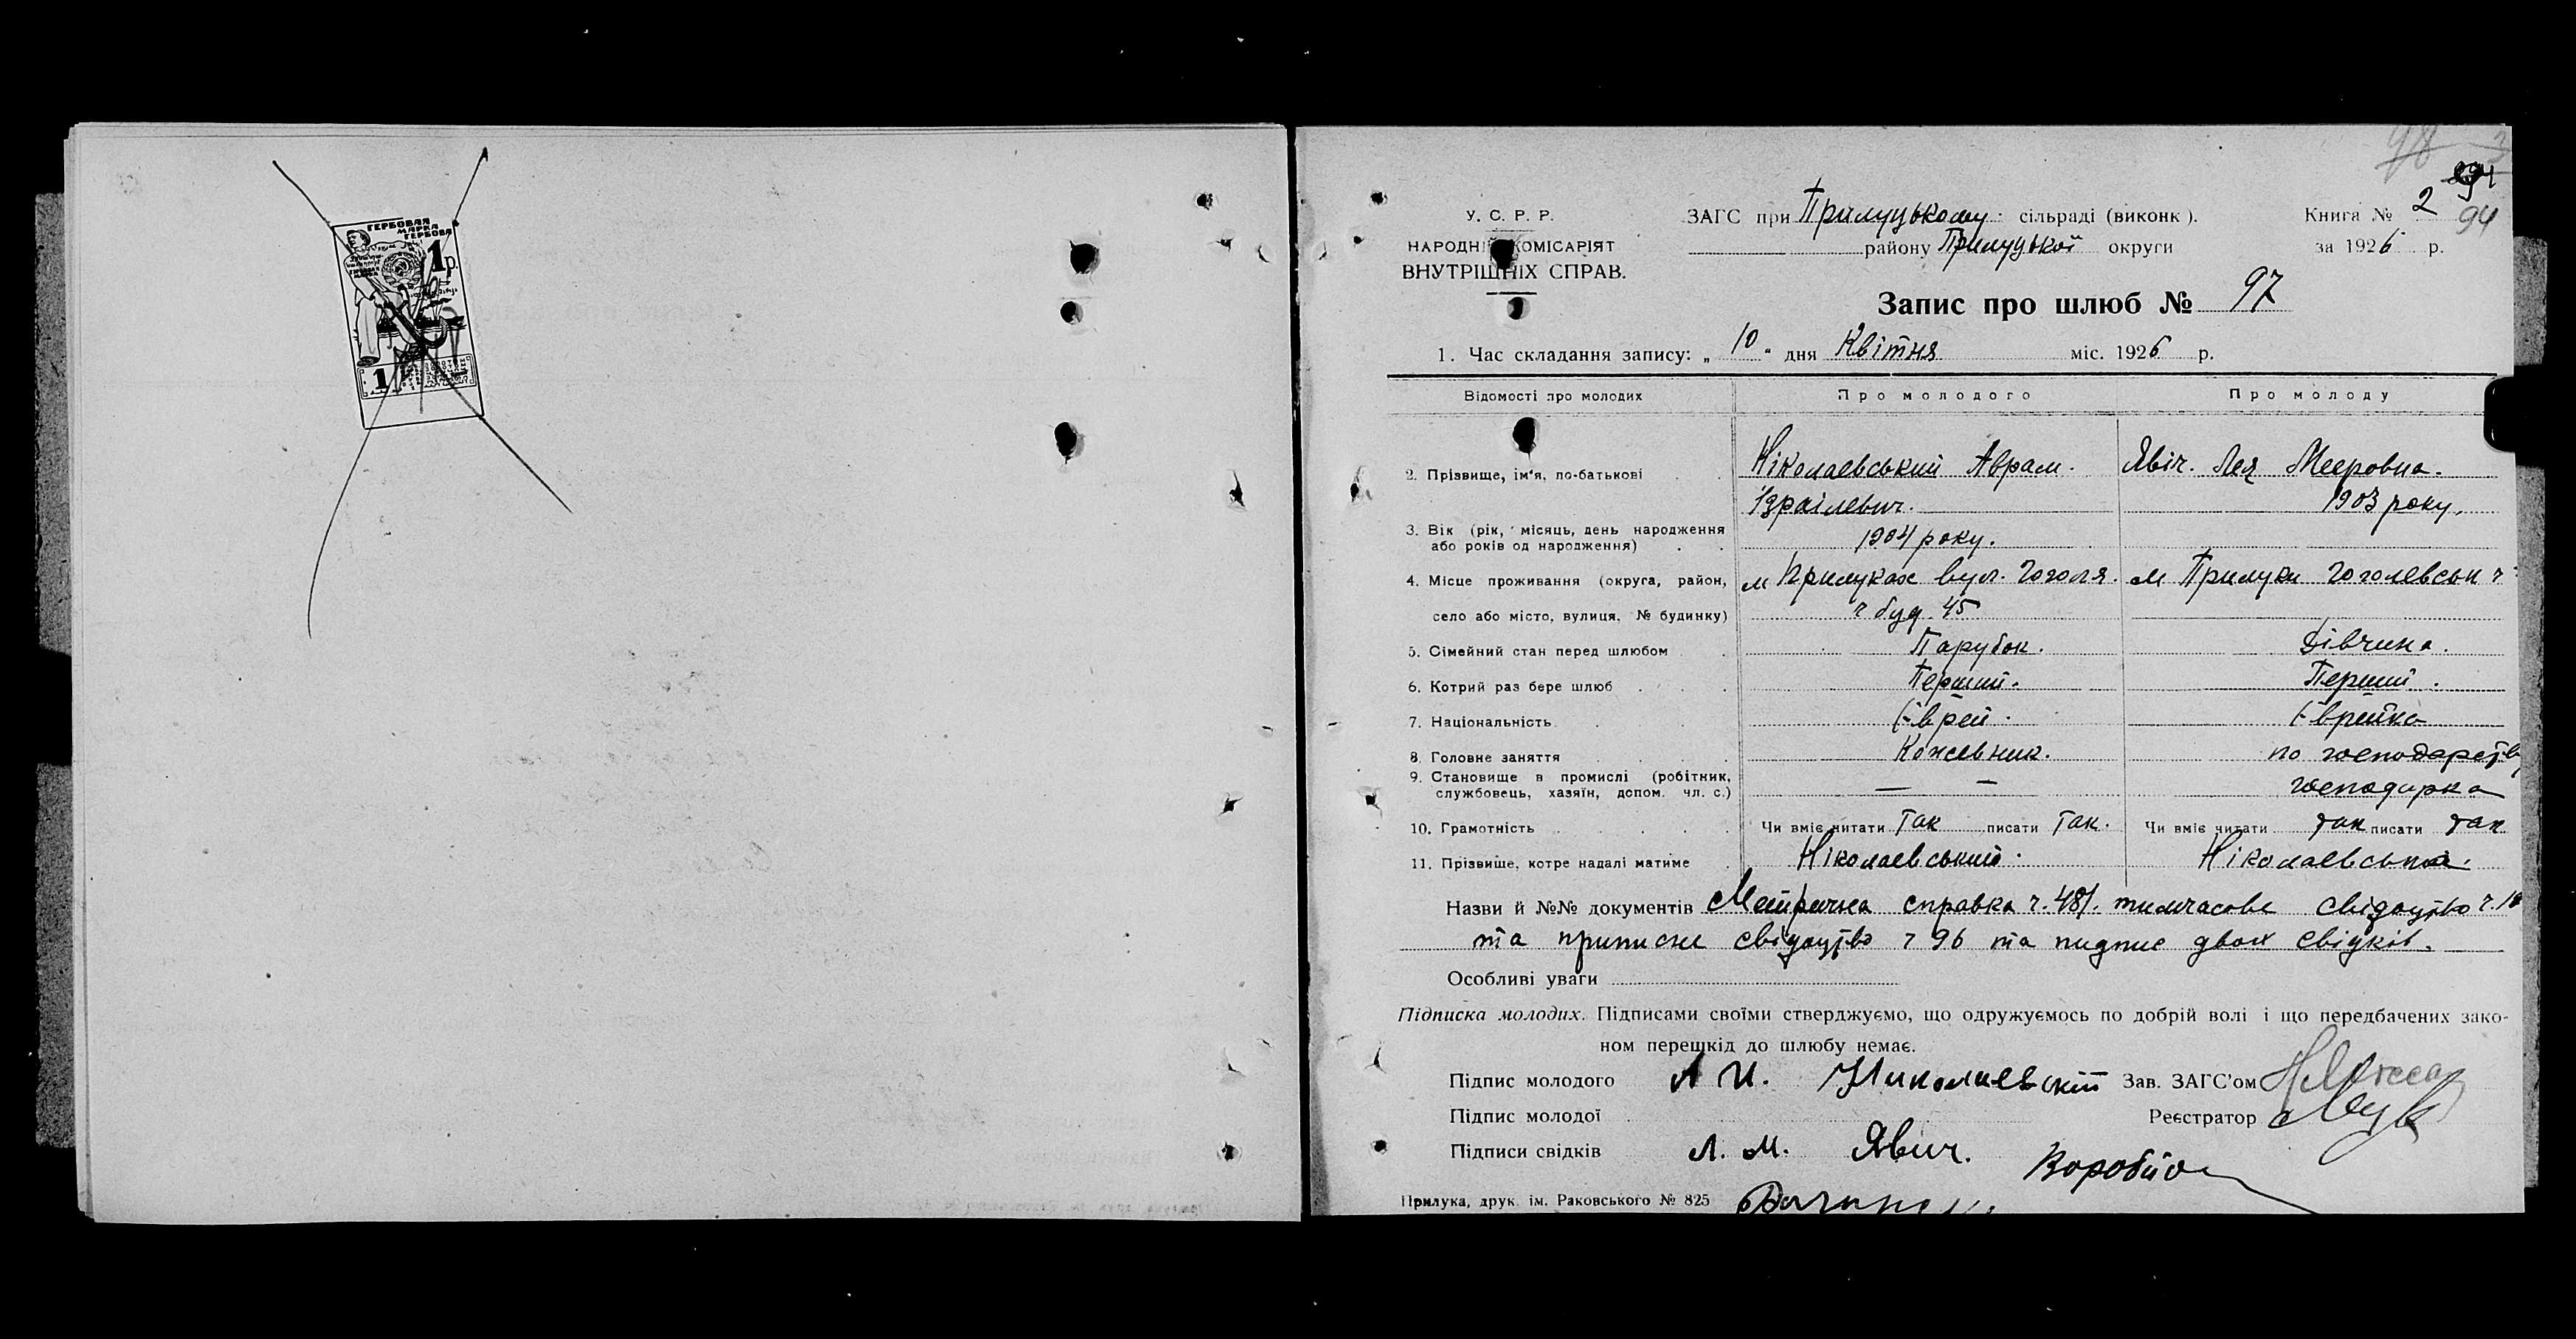 ГЕРБОВАЯ
МАРКА
ГЕРБОВА
1 р.
1
98
94
У. С. Р. Р.
ЗАГС при Прилуцькому сільраді (виконк).
Книга № 2
94
НАРОДНІЙ КОМІСАРІЯТ
району Прилуцької округи
за 1926 р.
ВНУТРІШНІХ СПРАВ.
Запис про шлюб № 97
1. Час складання запису: „ 10 " дня Квітня міс. 1926 р.
Відомості про молодих Про молодого Про молоду
2. Прізвище, ім'я, по-батькові Ніколаевський Аврам. Явіч. Лея Мееровна.
Ізраілевич. 1903 року.
3. Вік (рік, місяць, день народження
або років од народження) 1904 року.
4. Місце проживання (округа, район, м Прилуках вул. Гоголя. м Прилуки Гоголевськ ч
село або місто, вулиця, № будинку) ч буд. 45
5. Сімейний стан перед шлюбом Парубок. Дівчина.
6. Котрий раз бере шлюб Перший. Перший.
7. Національність Єврей. Єврейка
8. Головне заняття Кожевник. по господарству
9. Становище в промислі (робітник,
службовець, хазяїн, допом. чл. с.) — — господарка
10. Грамотність Чи вміє читати Так писати Так. Чи вміє читати так писати так
11. Прізвище, котре надалі матиме Ніколаевський. Ніколаевська.
Назви й №№ документів Метрична справка ч. 481. тимчасове свідоцтво ч.
та приписне свідоцтво ч 96 та пидпис двох свідків.
Особливі уваги
Підписка молодих. Підписами своїми стверджуємо, що одружуємось по добрій волі і що передбачених зако-
ном перешкід до шлюбу немає.
Підпис молодого А И. Николаевский Зав. ЗАГС'ом
Підпис молодої Реєстратор
Підписи свідків Л. М. Явич.
Прилука, друк. ім. Раковського № 825